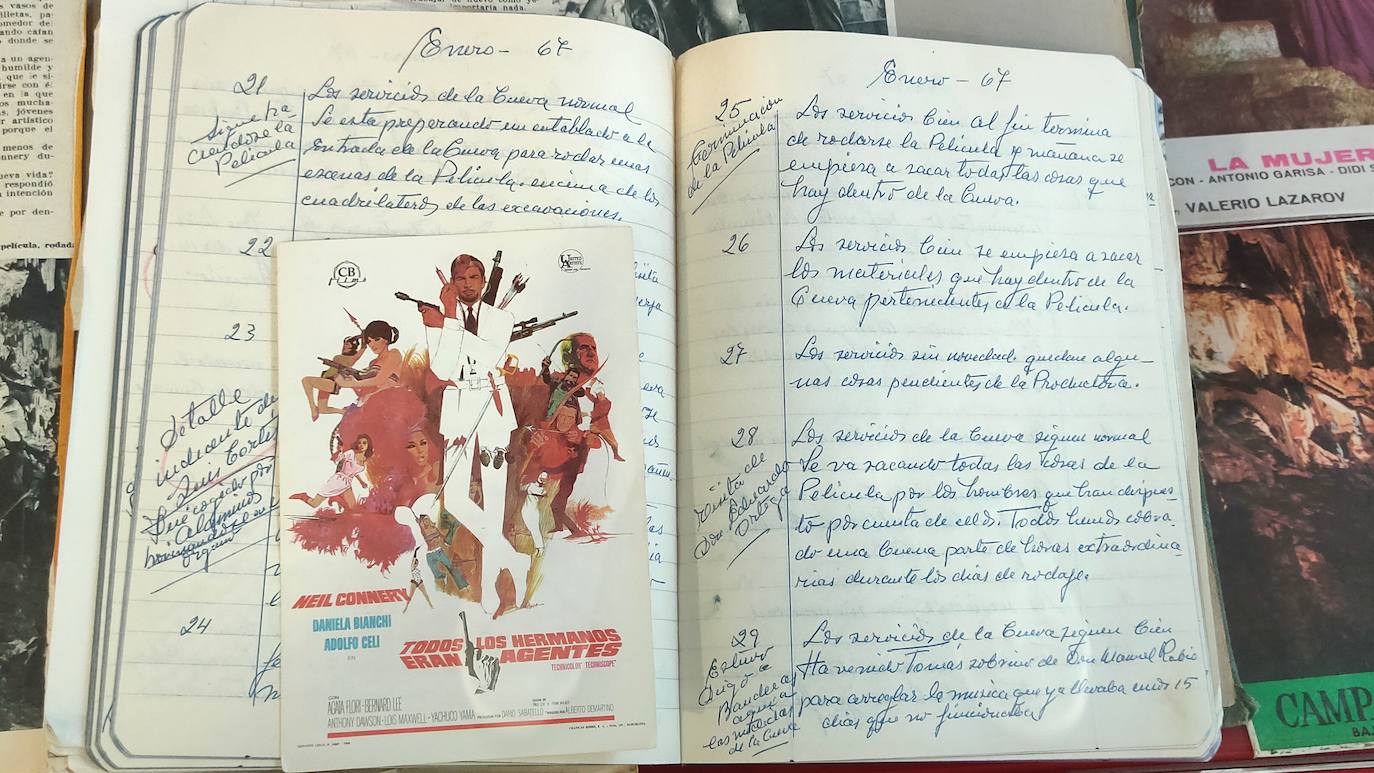 vasos de
lletas, pa-
omedor de
ando caían
donde se
un agen-
humilde y
que le si-
irse con él
en la que
os mucha-
as, jóvenes
r artístico
porque el
menos de
nnery du-
ueva vida?
respondió
intención
e por den-
película, rodada
importaría nada.
Enero - 67
21
Sigue ha-
ciendose la
Película
Los servicios de la Cueva normal
Se esta preparando un entablado a la
entrada de la Cueva para rodar unas
escenas de la Película. encima de los
cuadrilateros de las excavaciones.
22
23
Detalle
indicante de
Luis Cortes
Fué copiado por
24
CB
Film
UNITED
ARTISTS
NEIL CONNERY
DANIELA BIANCHI
ADOLFO CELI
EN
TODOS LOS HERMANOS
ERAN AGENTES
TECHNICOLOR TECHNISCOPE
CON
AGATA FLORI - BERNARD LEE
ANTHONY DAWSON - LOIS MAXWELL - YACHUCO YAMA
PRODUCIDA POR DARIO SABATELLO
ALBERTO DEMARTINO
Enero - 67
25
Terminación
de la Película
Los servicios bien al fin termina
de rodarse la Película y mañana se
empieza a sacar todas las cosas que
hay dentro de la Cueva.
26
Los servicios bien se empieza a sacar
los materiales que hay dentro de la
Cueva pertenecientes a la Película.
27
Los servicios sin novedad quedan algu-
nas cosas pendientes de la Productora.
28
visita de
Don Eduardo
Ortega
Los servicios de la Cueva siguen normal
Se va sacando todas las cosas de la
Película por los hombres que han dispues-
to por cuenta de ellos. Todos hemos cobra-
do una buena parte de horas extraordina-
rias durante los dias de rodaje.
29
Estuvo
Iñigo e
Banderas
aqui a
las
de la Cueva
Los servicios de la Cueva siguen bien
Ha venido Tomás sobrino de Don Manuel Rubio
para arreglar la musica que ya llevaba unos 15
dias que no funcionaba
LA MUJER
CON - ANTONIO GARISA - DIDI S
VALERIO LAZAROV
CAMP
BA